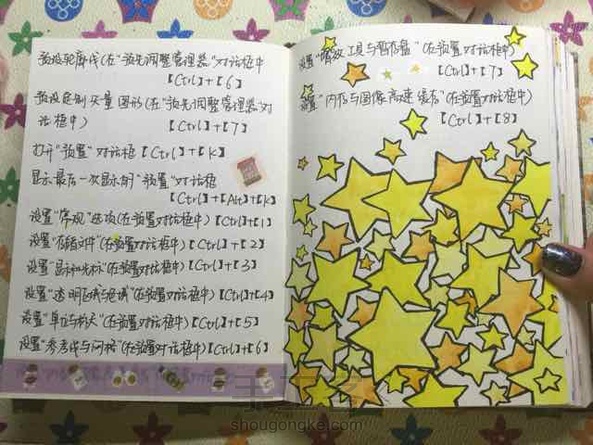 预设轮廓线(在“预先调整管理器”对话框中
【Ctrl】+【6】
预设定制矢量图形(在“预先调整管理器”对
话框中) 【Ctrl】+【7】
打开“预置”对话框【Ctrl】+【K】
显示最后一次显示的“预置”对话框
【Ctrl】+【Alt】+【K】
设置“常规”选项(在预置对话框中)【Ctrl】+【1】
设置“存储文件”(在预置对话框中)【Ctrl】+【2】
设置“显示和光标”(在预置对话框中)【Ctrl】+【3】
设置“透明区域与色域”(在预置对话框中)【Ctrl】+【4】
设置“单位与标尺”(在预置对话框中)【Ctrl】+【5】
设置“参考线与网格”(在预置对话框中)【Ctrl】+【6】
设置“增效工具与暂存盘”(在预置对话框中)
【Ctrl】+【7】
设置“内存与图像高速缓存”(在预置对话框中)
【Ctrl】+【8】
shougongke.com